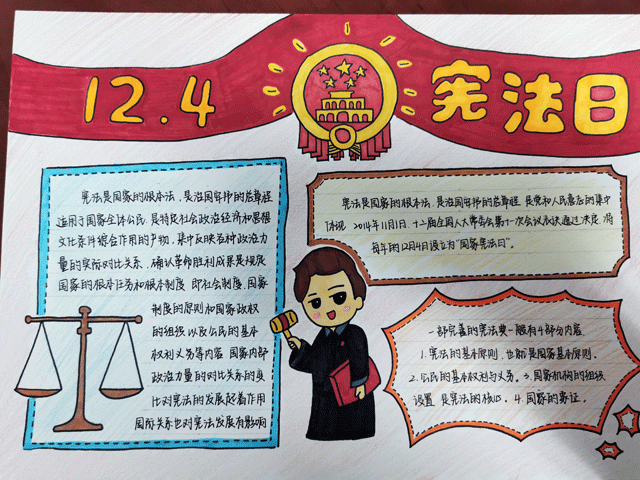 12.4 宪法日
宪法是国家的根本法，是治国安邦的总章程
适用于国家全体公民，是特定社会政治经济和思想
文化条件综合作用的产物，集中反映各种政治力
量的实际对比关系，确认革命胜利成果是规定
国家的根本任务和根本制度，即社会制度、国家
制度的原则和国家政权
的组织以及公民的基本
权利义务等内容 国家内部
政治力量的对比关系的变
化对宪法的发展起着作用
国际关系也对宪法发展有影响
宪法是国家的根本法，是治国安邦的总章程 是党和人民意志的集中
体现 2014年11月1日，十二届全国人大常委会第十一次会议表决通过决定，将
每年的12月4日设立为“国家宪法日”。
一部完善的宪法典一般有4部分内容
1.宪法的基本原则，也即是国家基本原则.
2.公民的基本权利与义务。3.国家机构的组织
设置 是宪法的核心。4.国家的象征。